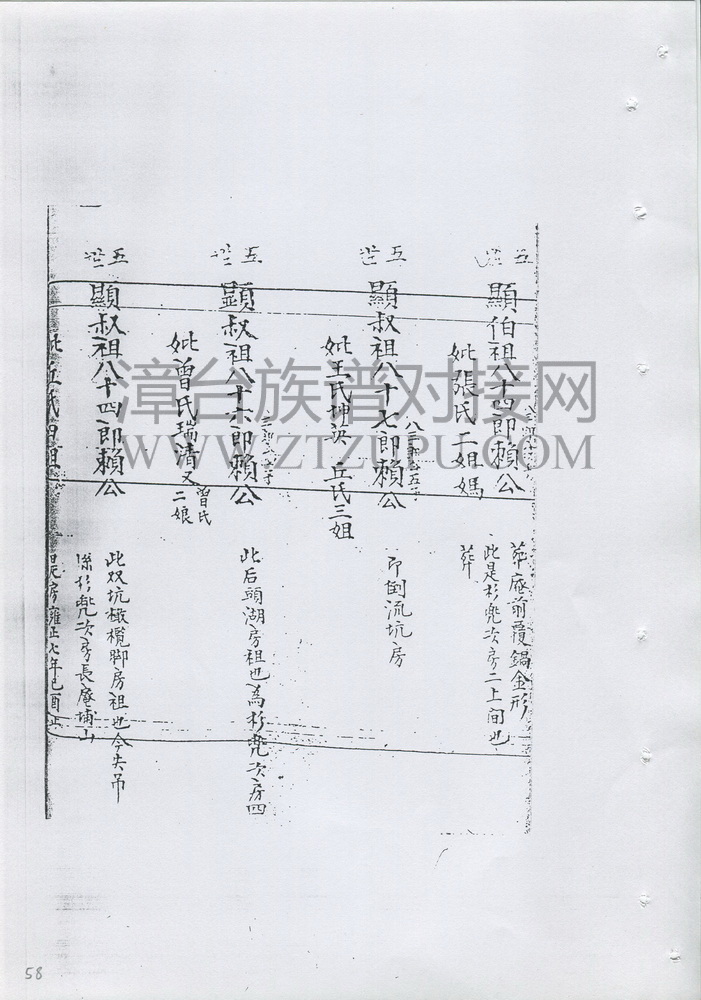 五世
顯伯祖八十四郎賴公
妣張氏二姐媽
葬庵前覆鍋金形
此是杉兜次房二上間也
葬
五世
顯叔祖八十七郎賴公
妣王氏坤決 丘氏三姐
即倒流坑房
五世
顯叔祖八十六郎賴公
妣曾氏瑞清又二娘
曾氏
此后頭湖房祖也為杉兜次房四
五世
顯叔祖八十四郎賴公
此双坑橄欖脚房祖也今失吊
係杉兜次房長庵埔山
妣丘氏四姐
房雍正七年己酉
漳台族谱对接网
WWW.ZTZUPU.COM
58